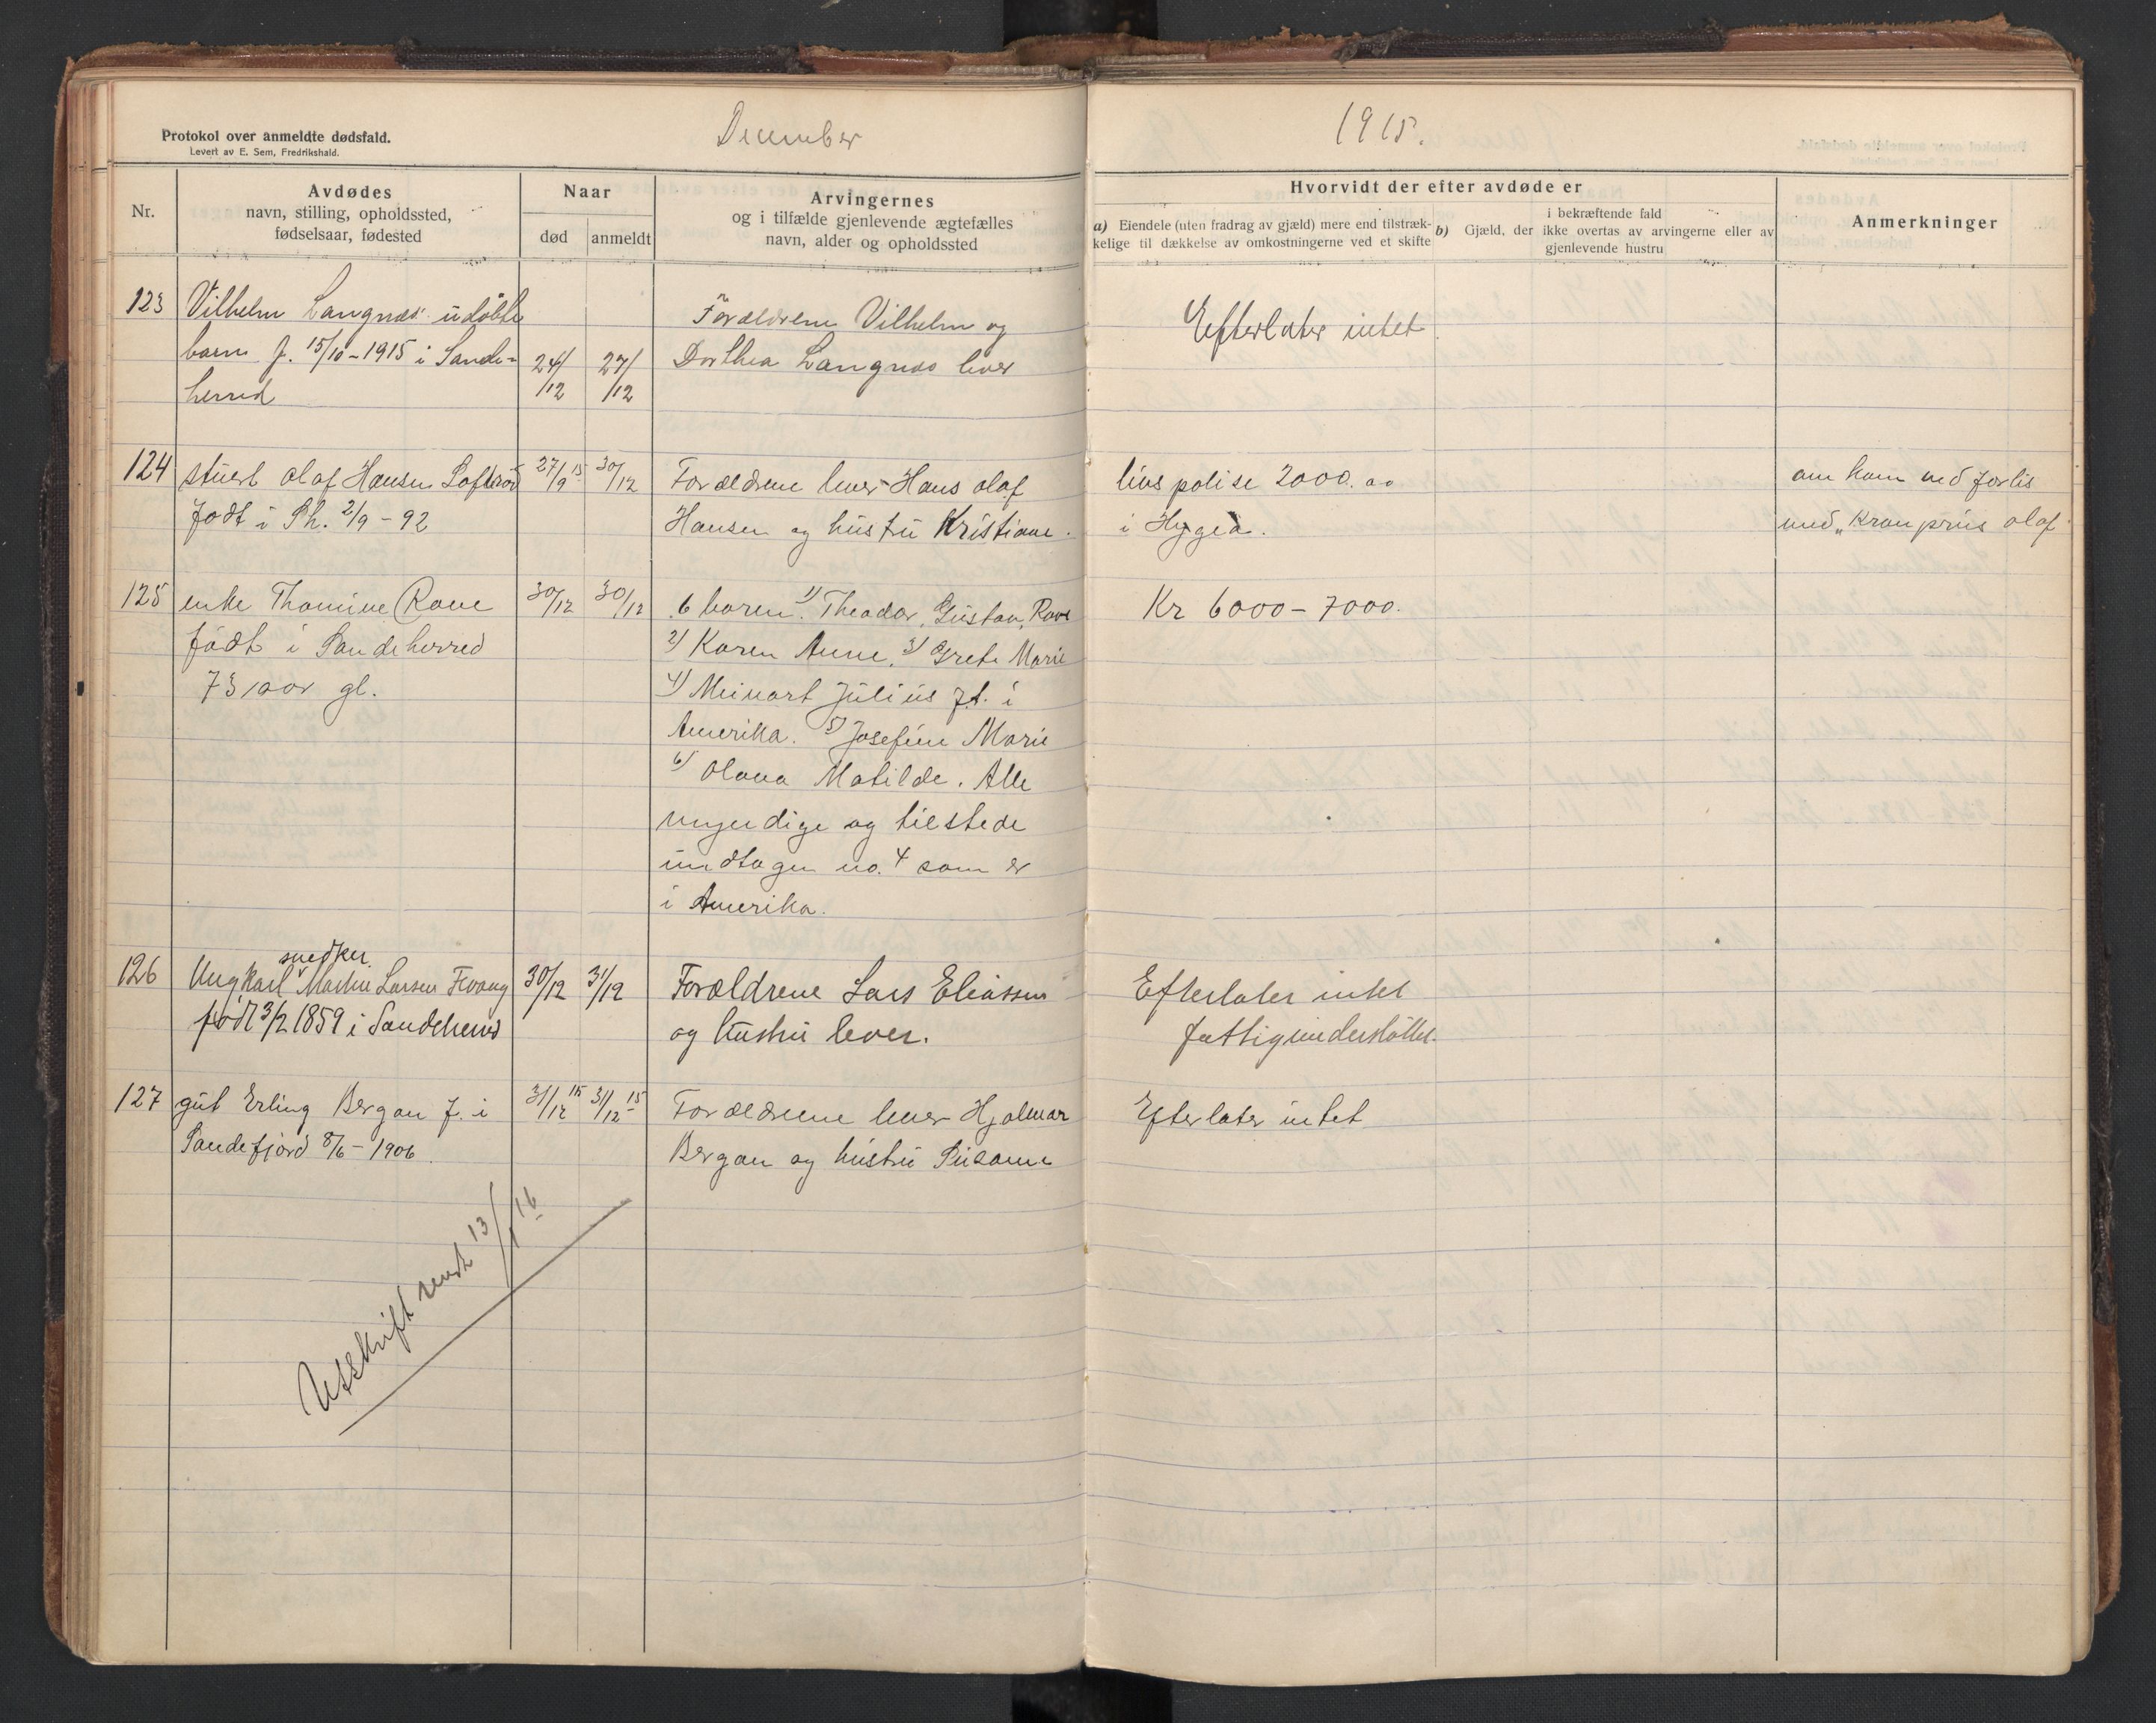 Protokol over anmeldte dødsfald.
Levert av E. Sem, Fredrikshald.
December
1915.
Nr.
Avdødes
navn, stilling, opholdssted,
fødselsaar, fødested
Naar
død
anmeldt
Arvingernes
og i tilfælde gjenlevende ægtefælles
navn, alder og opholdssted
Hvorvidt der efter avdøde er
a) Eiendele (uten fradrag av gjæld) mere end tilstræk-
kelige til dækkelse av omkostningerne ved et skifte
b) Gjæld, der
i bekræftende fald
ikke overtas av arvingerne eller av
gjenlevende hustru
Anmerkninger
123
Vilhelm Langnæs udøbte
barn f. 15/10-1915 i Sande-
herred
24/12
27/12
Forældrene Vilhelm og
Dorthea Langnæs lever
Efterlater intet
124
stuert Olaf Hansen Loftsrød
født i Sh. 2/9-92
27/9 15
30/12
Forældrene lever Hans Olaf
Hansen og hustru Kristiane.
livspolise 2000.00
i Hygea.
om kom ved forlis
med "Kronprins Olaf
125
enke Thomine Rove
født i Sandeherred
73 aar gl.
30/12
30/12
6 barn. 1) Theodor, Gustav, Rove
2) Karen Anne, 3) Grete Marie
4) Meinart Julius f.t. i
Amerika. 5) Josefine Marie
6) Olava Matilde. Alle
myndige og tilstede
undtagen no. 4 som er
i Amerika.
Kr 6000-7000.
126
snedker
Ungkarl Martin Larsen Fevang
født 3/2 1859 i Sandeherred
30/12
31/12
Forældrene Lars Eliassen
og hustru lever.
Efterlater intet
fattigunderstøttet.
127
gut Erling Bergan f. i
Sandefjord 8/6-1906
31/12 15
31/12 15
Forældrene lever Hjalmar
Bergan og hustru Susanne
Efterlater intet
Utskrift sendt 13/1 16